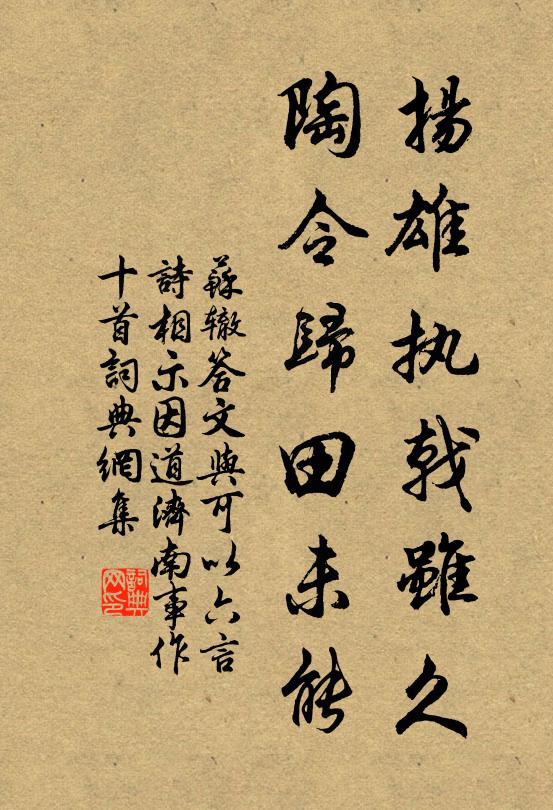 揚雄执戟雖久
陶令歸田未能
蘇辙答文與可以六言
詩相示因道濟南事作
十首詞典網集
詞典
网印